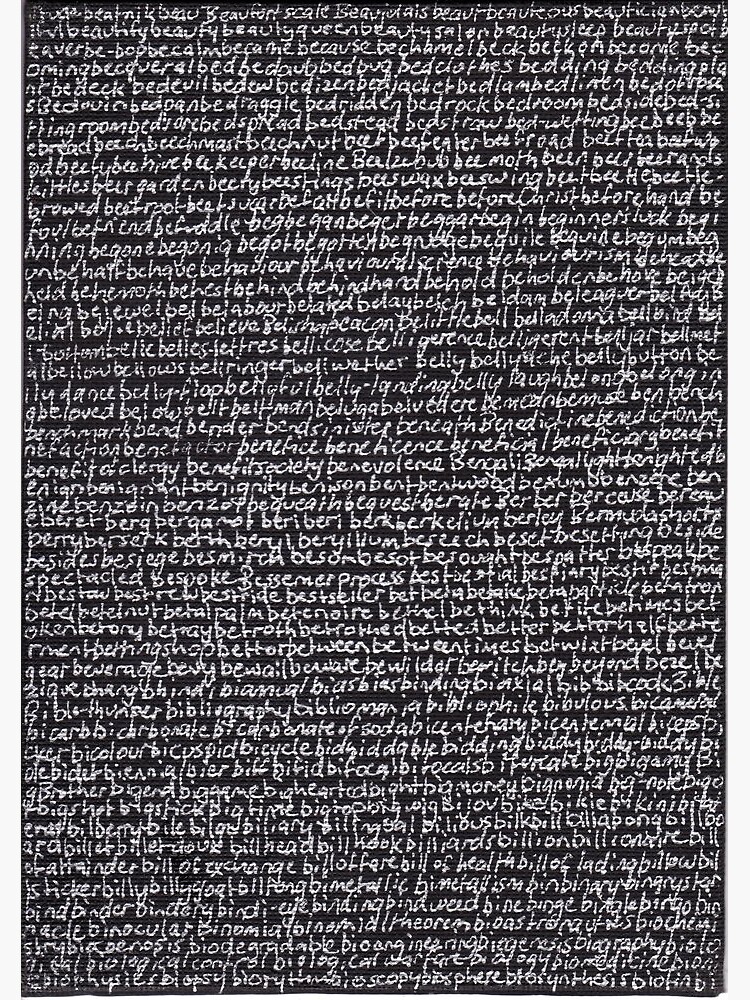 beatnik beau Beaufort scale Beaujolais beaut beauteous beautician beauti
ful beautify beauty beauty queen beauty salon beauty sleep beauty spot
eaver be-bop becalm became because bechamel beck beckon become bec
oming becquerel bed bedaub bedbug bedclothes bedding bedding pla
nt bedeck bedevil bedew bedizen bedjacket bedlam bedlinen Bedou
Bedouin bedpan bedraggle bedridden bedrock bedroom bedside bed-si
tting room bedsore bedspread bedstead bedstraw bed-wetting bee beep be
ebread beech beechmast beechnut beef beefeater bee-road
beely beehive beekeeper beeline Beelzebub bee moth been beer beer and s
kittles beer garden beery beestings beeswax beeswing beet beetle beetle
browed beetroot beet sugar befall befit before before Christ beforehand be
foul befriend befuddle beg began beget beggar begin beginners luck begi
nning begone begonia begot begotten begrudge beguile beguine begum beg
un behalf behave behaviour behavioural science behaviourism behead be
held behemoth behest behind behindhand behold beholden behove beige b
eing bejewel bel belabour belated belay belch beldam beleaguer bel
elial belie belief believe Belisha beacon belittle bell belladonna
bottom belle belles-lettres bellicose belligerence belligerent bell jar bellmet
al bellow bellows bellringer bellwether belly bellyache belly button be
lly dance belly-flop bellyful belly-landing belly laugh belong belongin
g beloved below belt beltman beluga belvedere bemoan bemuse ben bench
benchmark bend bender bend sinister beneath benedictine benediction be
nefaction benefactor benefice beneficence beneficial beneficiary benefit
benefit of clergy benefit society benevolence Bengali Bengal light benighted b
enign benignant benignity benison bent bentwood benumb benzene ben
zine benzoin benzol bequeath bequest berate Berber berceuse bereav
e beret berg bergamot beriberi berk berkelium berley Bermuda shorts
berry berserk berth beryl beryllium beseech beset besetting beside
besides besiege besmirch besom besot besought bespatter bespeak be
spectacled bespoke Bessemer process best bestial bestiary bestir best ma
n bestow bestrew bestride bestseller bet beta betake betatron
betel betel nut betel palm bete noire bethel bethink betide betimes bet
oken betony betray betroth betrothed betted better better half bette
rment betting shop bettor between betweentimes betwixt bevel bevel
gear beverage bevy bewail beware bewilder bewitch bey beyond bezel be
zique bhang bhindi biannual bias bias binding biaxial bib bibcock Bible
Bible-thumper bibliography bibliomania bibliophile bibulous bicameral
bicarb bicarbonate bicarbonate of soda bicentenary bicentennial biceps b
icker bicolour bicuspid bicycle bid biddable bidding biddy biddy-biddy bi
de bidet biennial bier biff bifid bifocal bifocals bifurcate big bigamy bi
g Brother big end big game big-hearted bight big money bignonia big-note bigo
t big shot big stick big time big top bigwig bijou bike bikie bikini bilat
eral bilberry bile bilge biliary bilingual bilious bilk bill billabong billbo
ard billet billet-doux billhead billhook billiards billion billionaire bill
of attainder bill of exchange bill of fare bill of health bill of lading billow bil
lsticker billy billygoat biltong bimetallic bimetallism bin binary binary star
bind binder bindery bindi-eye binding bindweed bine binge bingle bingo bin
nacle binocular binomial binomial theorem bio astronautics biochem
istry biocoenosis biodegradable bioengineering biogenesis biography biolo
gical biological control biological warfare biology biomedicine
biophysics biopsy biorhythm bioscopy biosphere biosynthesis